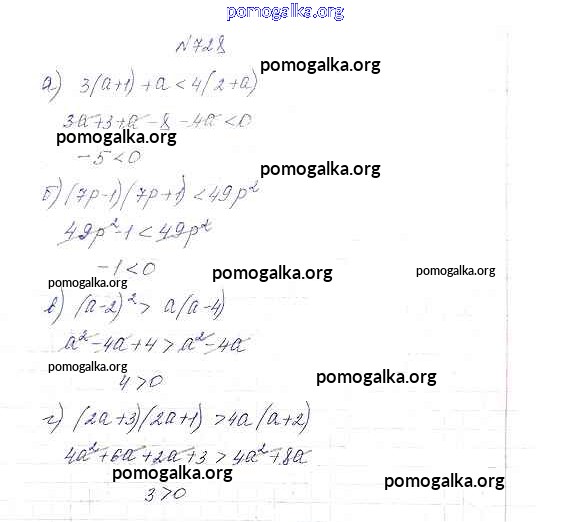 pomogalka.org
№728
pomogalka.org
а) 3(a+1)+a<4(2+a)
3a+3+a-8-4a<0
pomogalka.org
-5<0
pomogalka.org
б) (7p-1)(7p+1)<49p²
49p²-1<49p²
-1<0
pomogalka.org
pomogalka.org
pomogalka.org
в) (a-2)²> a(a-4)
a²-4a+4>a²-4a
pomogalka.org
4>0
pomogalka.org
г) (2a+3)(2a+1)>4a(a+2)
4a²+6a+2a+3>4a²+8a
pomogalka.org
pomogalka.org
3>0